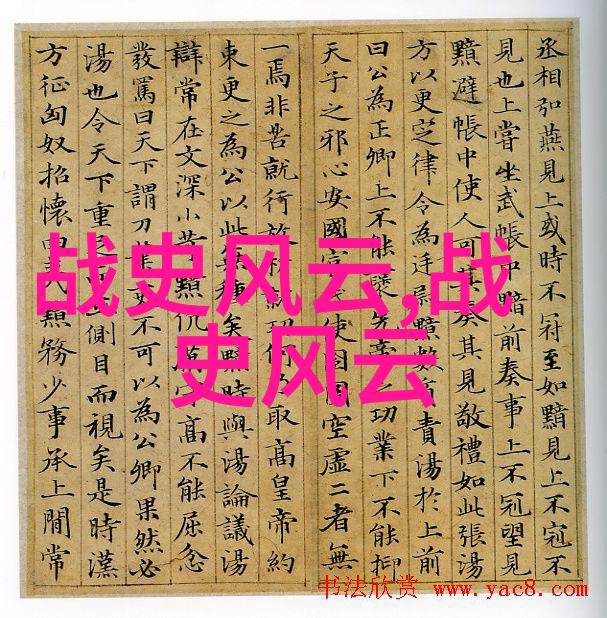 丞相弘燕見上或時不冠至如黯見上不冠不
見也上嘗坐武帳中黯前奏事上不冠望見
黯避帳中使人可其奏其見敬禮如此張湯
方以更定律令為廷尉黯數質責湯於上前
曰公為正卿上不能襃先帝之功業下不能抑
天子之邪心安國富民使囹圄空虛二者無
一焉非苦就行放析就功何乃取高皇帝約
束更之為公以此無種矣黯時與湯論議湯
辯常在文深小苛黯伉厲守高不能屈忿
發罵曰天下謂刀筆吏不可以為公卿果然必
湯也令天下重足而立側目而視矣是時漢
方征匈奴招懷四夷黯務少事承上間常
战史风云,战
史风云
书法欣赏 www.yac8.com